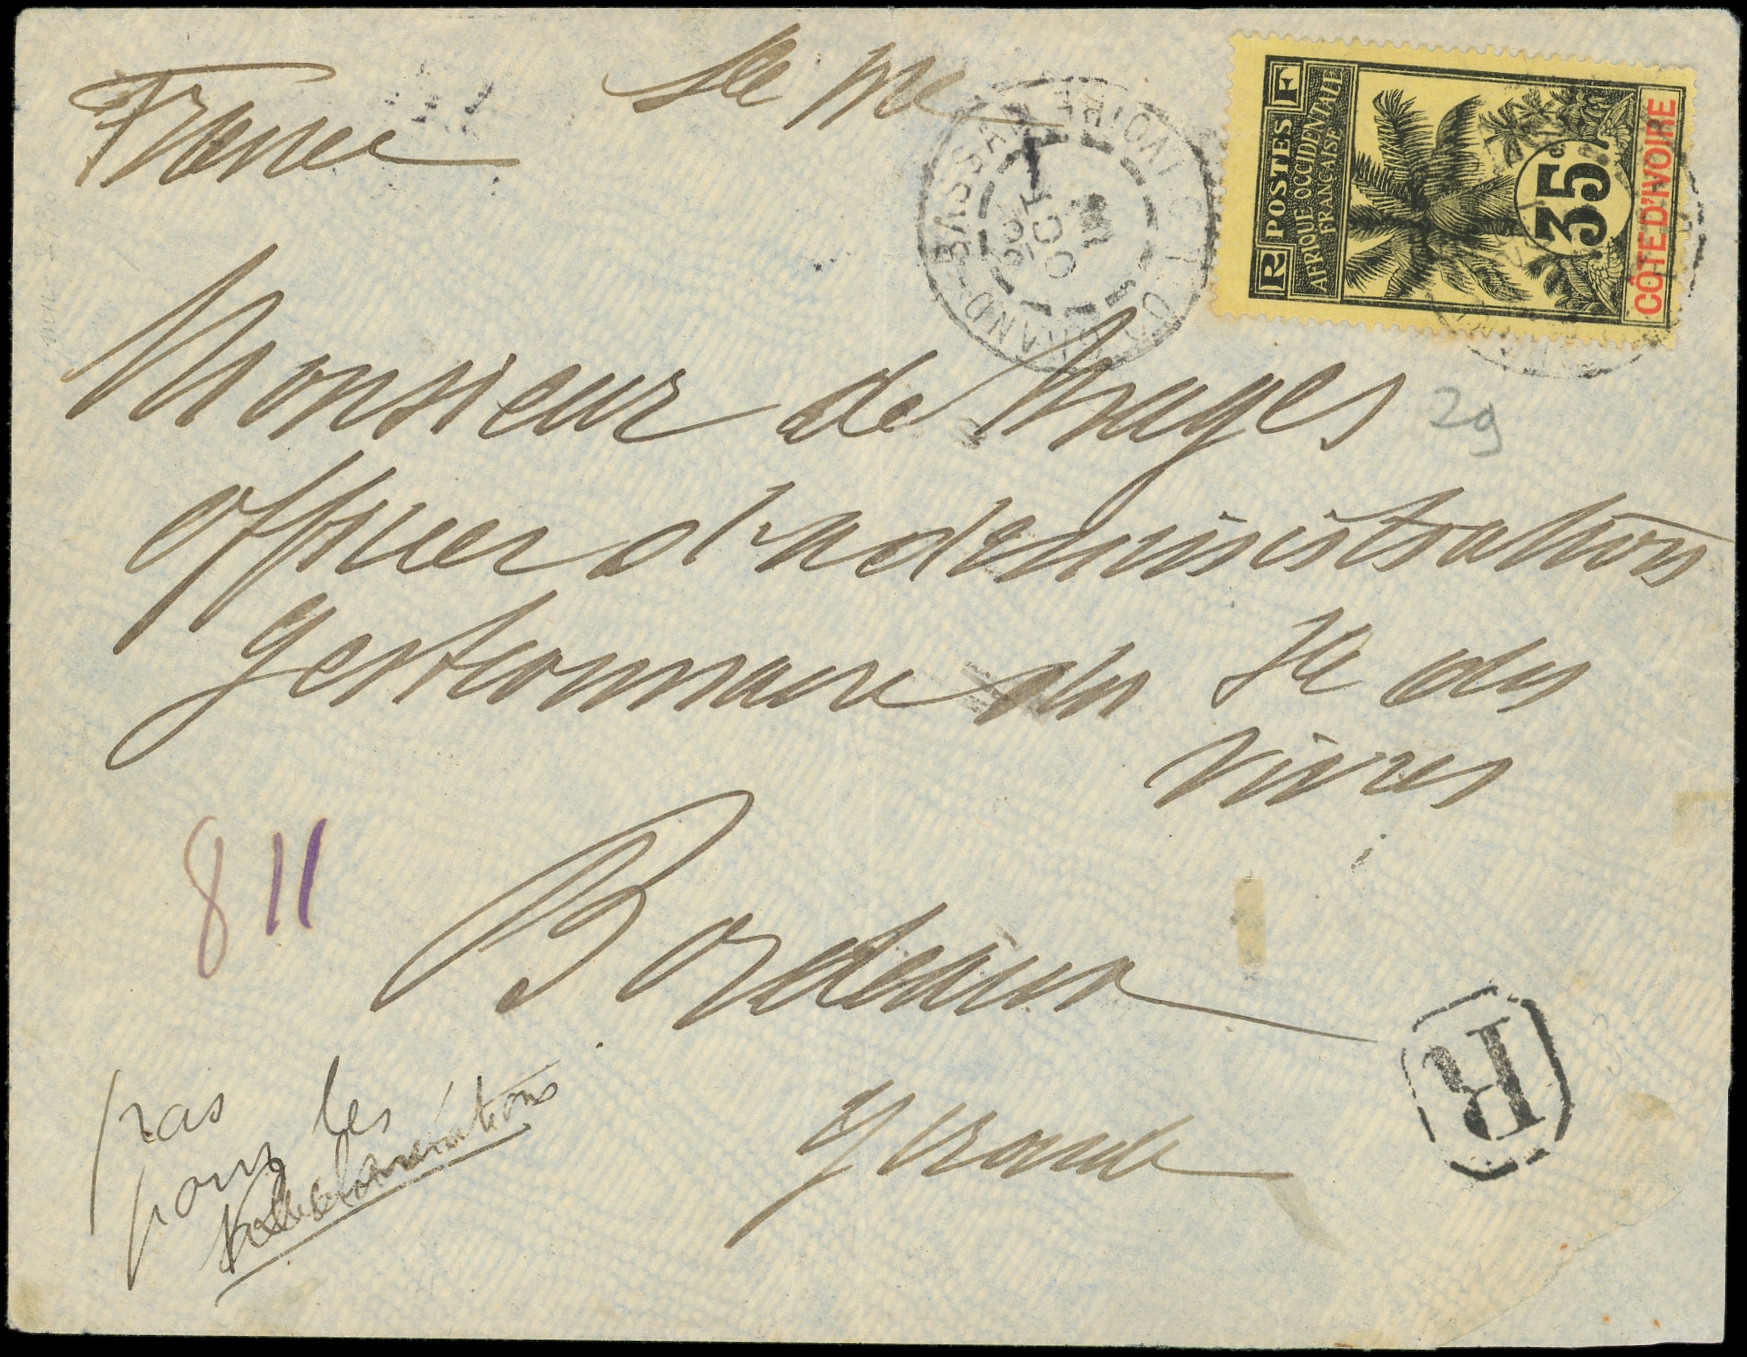 France
R POSTES F
AFRIQUE OCCIDENTALE
FRANÇAISE
35c
CÔTE D'IVOIRE
GRAND-BASSAM
CÔTE D'IVOIRE
OCT
Monsieur de Mages
29
Officier d'administration
gestionnaire des
des
vivres
811
Bordeaux
Gironde
R
pas
pour les